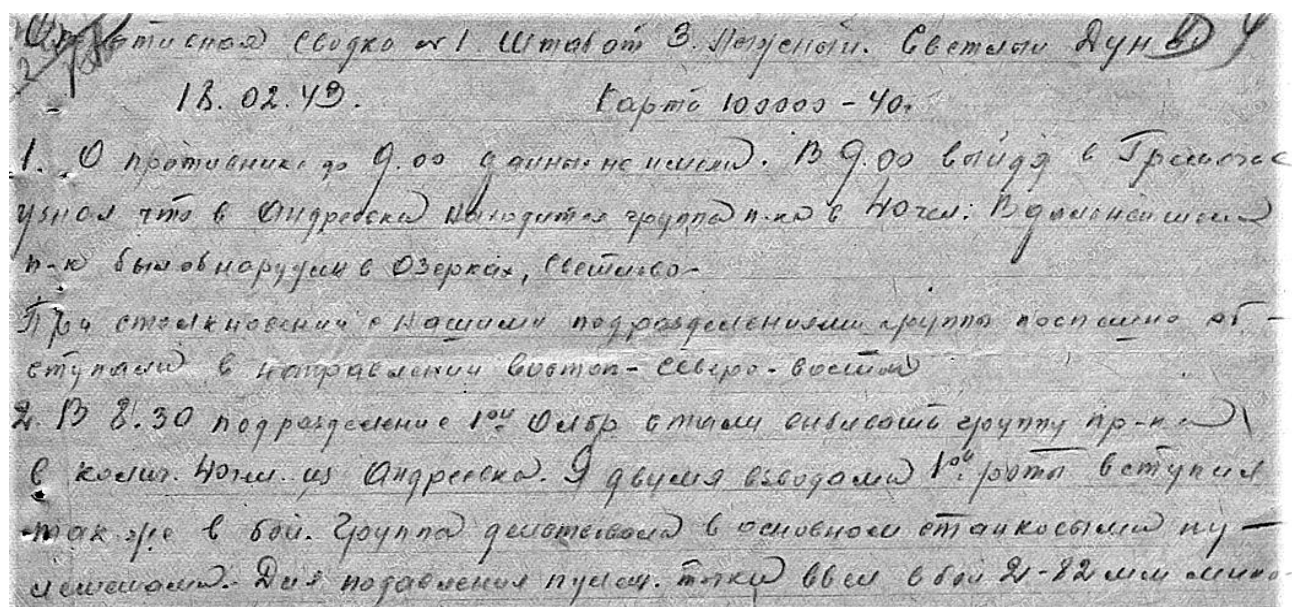 сводка № 1. Штаб от 3. Светлый Дунай
18.02.43. Карта 100000 – 40г.
1. О противнике до 9.00 данных не имел. В 9.00 выйдя в
узнал что в Андреевка находится группа п-ка в 40 чел. В дальнейшем
п-к был обнаружен в Озерках, Светлово-
При столкновении с нашими подразделениями группы поспешно от-
ступали в направлении восток-северо-восток
2. В 8.30 подразделение 1ой Олбр стали выбивать группу пр-ка
в колич. 40 чел. из Андреевка. Я двумя взводами 1ой роты вступил
так же в бой. Группа действовала в основном станковыми пу-
леметами. Для подавления пулем. точки ввел в бой 2-82 мм мино-